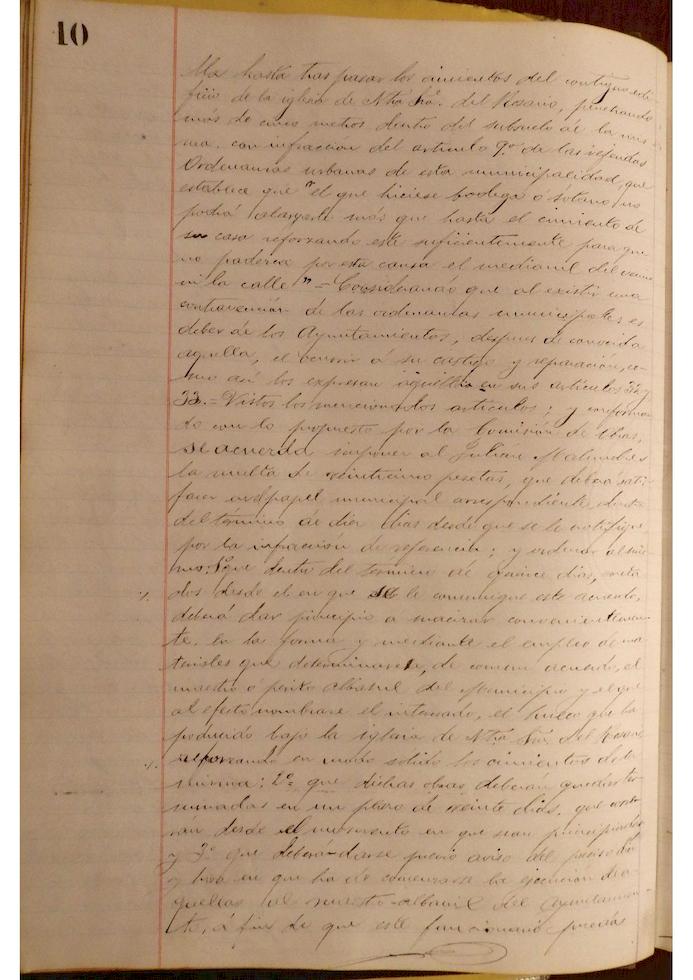 10
hasta traspasar los cimientos del contiguo edi
ficio de la iglesia de Ntra Sra. del Rosario, penetrando
más de cinco metros dentro del subsuelo de la mis
ma. con infracción del artículo 9.º de las
Ordenanzas urbanas de esta municipalidad, que
establece que "el que hiciese bodega ó sótano, no
podrá alargarse más que hasta el cimiento de
su casa reforzando este suficientemente para que
no padezca por esta causa el medianil del vecino
ni la calle" = Considerando que al existir una
contravención de las ordenanzas municipales es
deber de los Ayuntamientos, despues de conocida
aquella, el ocurrir á su castigo y reparación, co-
mo así los expresan aquellas en sus artículos y
33. = Vistos los mencionados artículos; y conforman
do con lo propuesto por la Comisión de Obras,
se acuerda imponer al Julian
la multa de veinticinco pesetas, que deberá satis
facer en papel municipal correspondiente, dentro
del término de diez dias desde que se le notifique
por la infracción de referencia; y ordenar al mis
mo: 1º que dentro del termino de quince dias, conta
dos desde el en que se le comunique este acuerdo,
deberá dar principio a macizar convenientemen-
te. en la forma y mediante el empleo de ma
teriales que determinaren, de comun acuerdo, el
maestro ó perito albañil del Municipio y el que
al efecto nombrase el interesado, el hueco que ha
producido bajo la iglesia de Ntra Sra. del Rosario
reforzando en modo solido los cimientos de la
misma: 2º = que dichas obras deberán quedar ter
minadas en un plazo de veinte dias, que conta
rán desde el momento en que sean principiadas
y 3º que deberá darse previo aviso del dia
y hora en que ha de comenzarse la ejecución de a-
quellas al maestro-albañil del Ayuntamien-
to, á fin de que este funcionario pueda